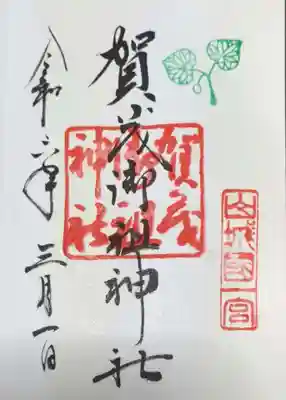 山城国一宮
賀茂御祖神社
賀茂御祖神社
令和六年三月一日